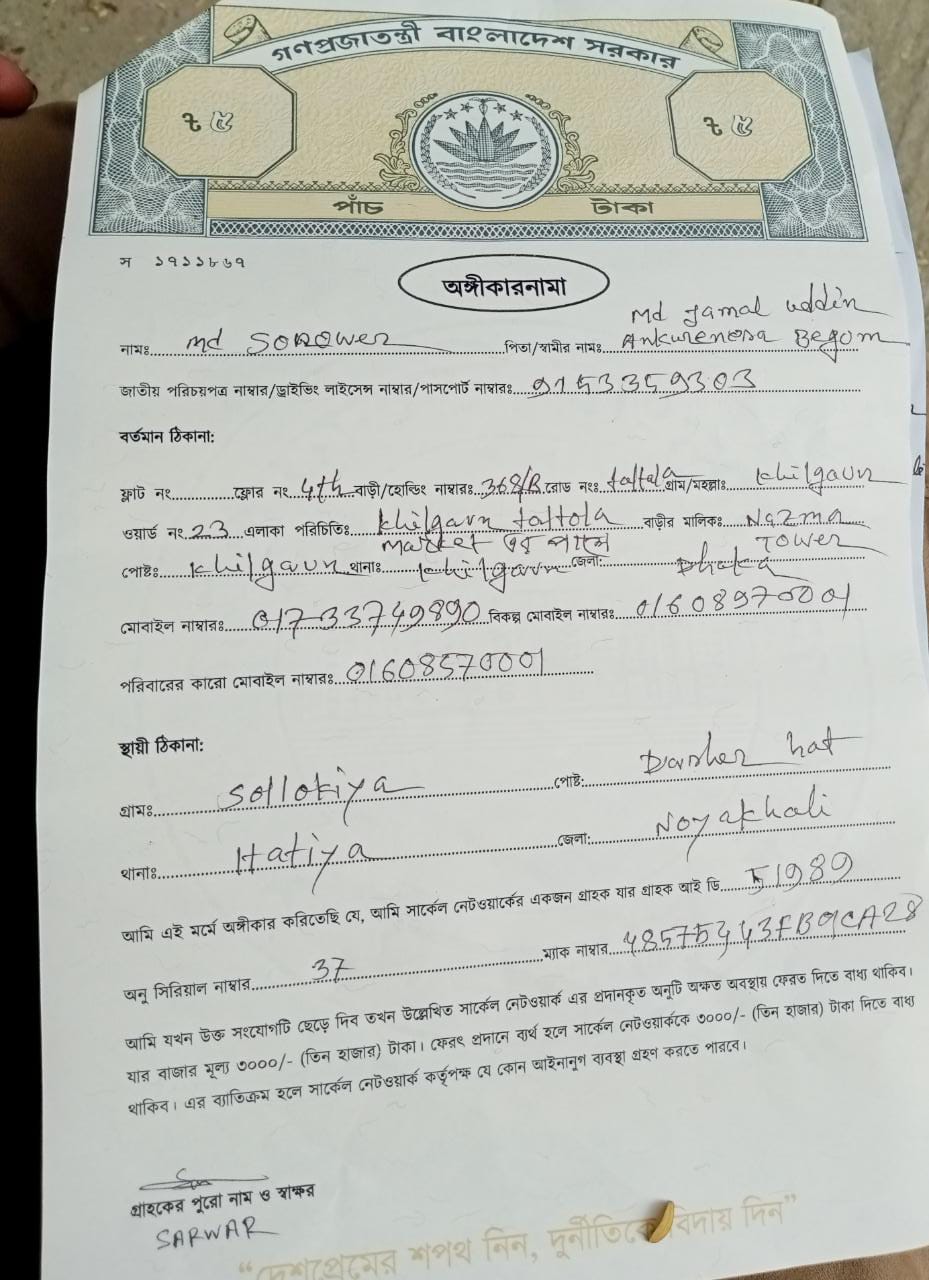 গণপ্রজাতন্ত্রী বাংলাদেশ সরকার
৳ ৫ ৳ ৫
পাঁচ টাকা
স ১৭১১৮৬৭
অঙ্গীকারনামা
Md Jamal uddin
নামঃ Md SOROWER পিতা/স্বামীর নামঃ Ankurenersa Begom
জাতীয় পরিচয়পত্র নাম্বার/ড্রাইভিং লাইসেন্স নাম্বার/পাসপোর্ট নাম্বারঃ 9153359303
বর্তমান ঠিকানা:
ফ্লাট নং ফ্লোর নং 4th বাড়ী/হোল্ডিং নাম্বারঃ 368/B রোড নংঃ taltola গ্রাম/মহল্লাঃ khilgaun
ওয়ার্ড নং 23 এলাকা পরিচিতিঃ khilgaun taltola বাড়ীর মালিকঃ Nazma
market এর পাশে TOWER
পোষ্টঃ khilgaun থানাঃ khilgaun জেলা: Dhaka
মোবাইল নাম্বারঃ 01733749890 বিকল্প মোবাইল নাম্বারঃ 01608970001
পরিবারের কারো মোবাইল নাম্বারঃ 01608570001
স্থায়ী ঠিকানা:
গ্রামঃ Sollokiya পোষ্ট: Dasher hat
থানাঃ Hatiya জেলা: Noyakhali
আমি এই মর্মে অঙ্গীকার করিতেছি যে, আমি সার্কেল নেটওয়ার্কের একজন গ্রাহক যার গ্রাহক আই ডি 51989
অনু সিরিয়াল নাম্বার 37 ম্যাক নাম্বার
আমি যখন উক্ত সংযোগটি ছেড়ে দিব তখন উল্লেখিত সার্কেল নেটওয়ার্ক এর প্রদানকৃত অনুটি অক্ষত অবস্থায় ফেরত দিতে বাধ্য থাকিব।
যার বাজার মূল্য ৩০০০/- (তিন হাজার) টাকা। ফেরৎ প্রদানে ব্যর্থ হলে সার্কেল নেটওয়ার্ককে ৩০০০/- (তিন হাজার) টাকা দিতে বাধ্য
থাকিব। এর ব্যাতিক্রম হলে সার্কেল নেটওয়ার্ক কর্তৃপক্ষ যে কোন আইনানুগ ব্যবস্থা গ্রহণ করতে পারবে।
গ্রাহকের পুরো নাম ও স্বাক্ষর
SARWAR
“দেশপ্রেমের শপথ নিন, দুর্নীতিকে বিদায় দিন”